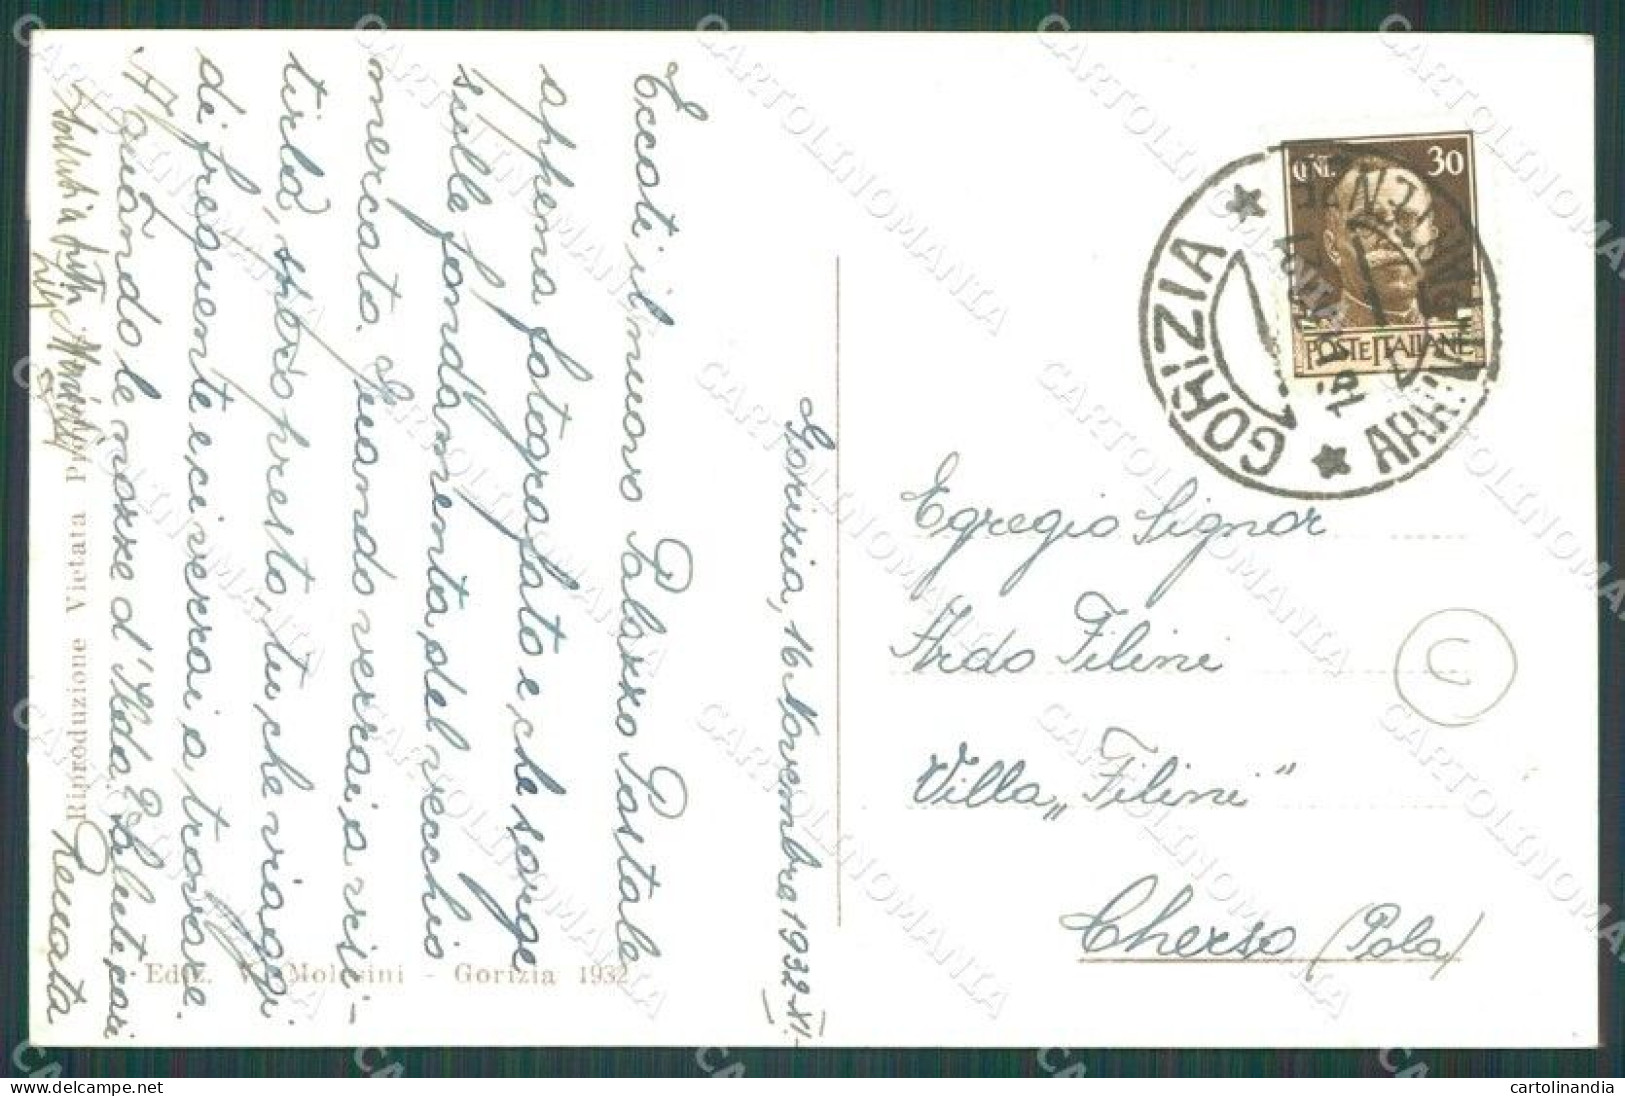 Gorizia, 16 Novembre 1932-XI.
Eccoti il nuovo Palazzo Postale
appena fotografato e, che sorge
sulle fondamenta, del vecchio
mercato. Quando verrai, a visi-
tirla, spero presto, tu, che viaggi
di frequente e, ci verrai a trovare.
A quando le nozze d'
Saluti, cari
Renata
Riproduzione Vietata
Ediz. Molesini - Gorizia 1932
CENT. 30
POSTE ITALIANE
GORIZIA
Egregio Signor
Ardo Filini
Villa „Filini"
Cherso (Pola)
U
CARTOLINOMANIA
cartolinandia